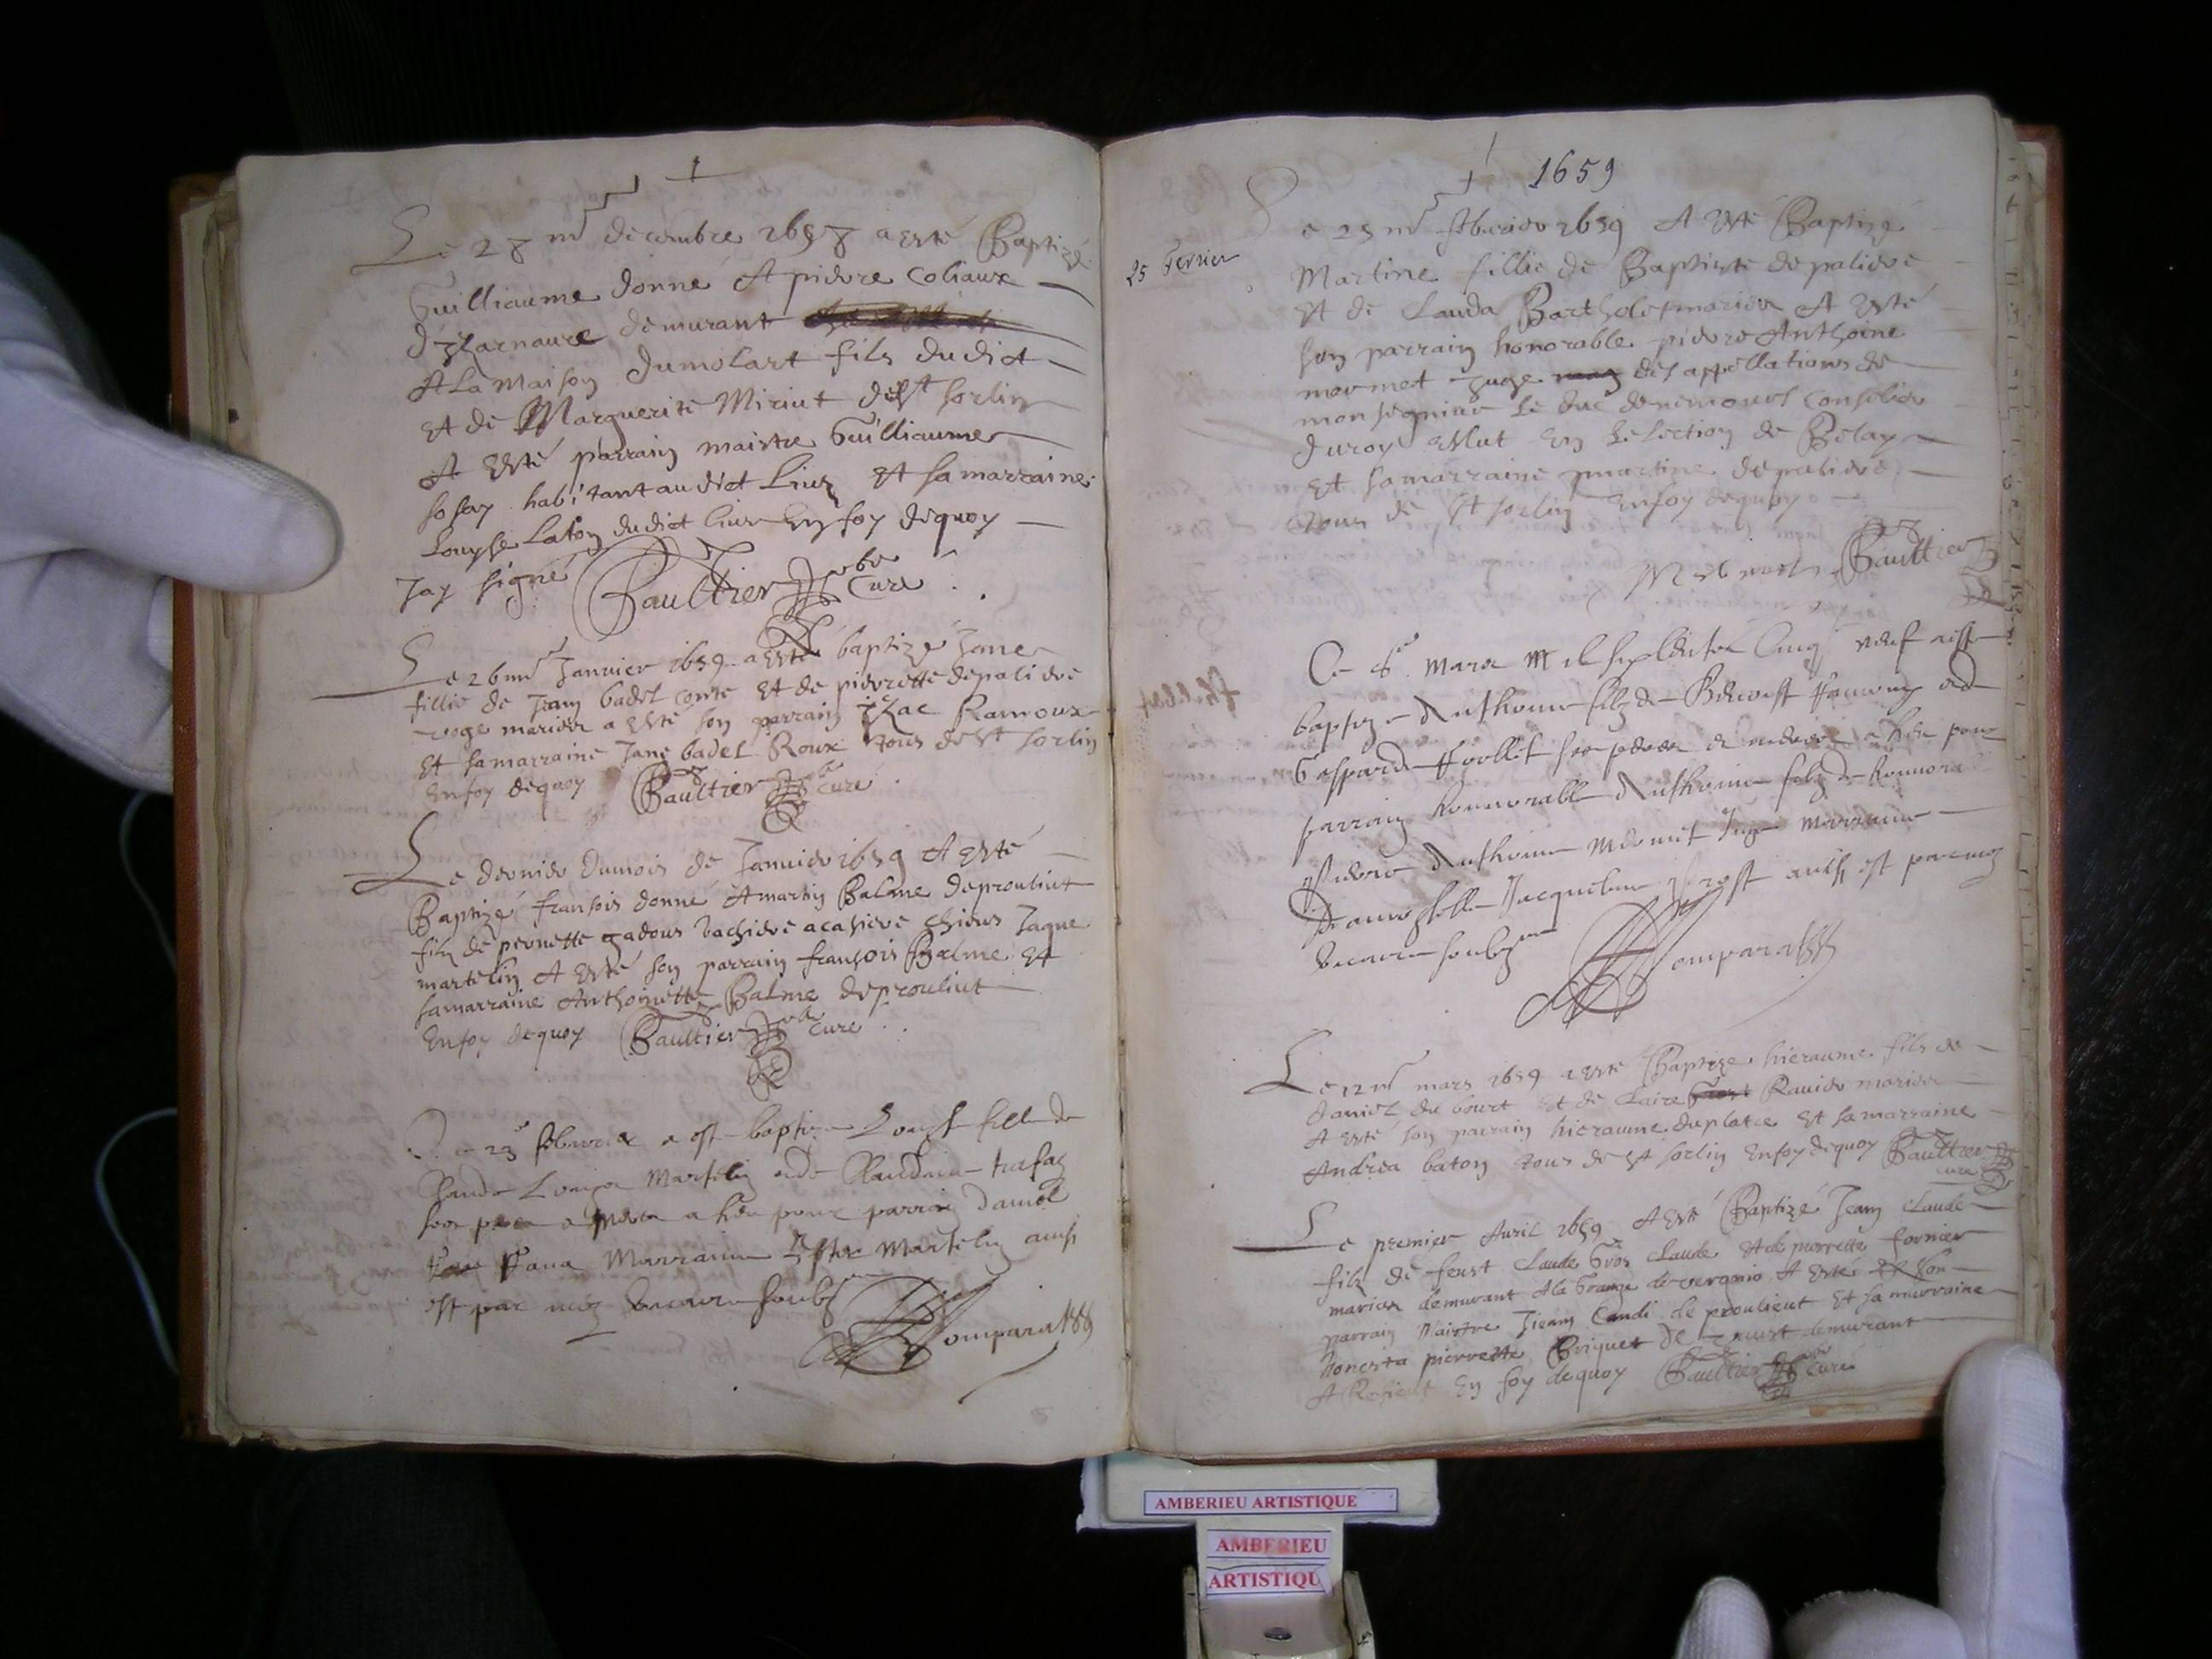 Le 28 me decembre 1658 a esté Baptizé
Guilliaume donné A pierre Coliaux
demurant
A La Maison dumolart fils du dict
et de Marguerite Miriut de st sorlin
A esté parrain maistre Guilliaume
habitant au dict Lieu et sa marraine
Louyse Laton du dict lieu En foy dequoy
Jay signé Gaultier pbre Curé
Le 26 me Janvier 1659 a esté baptizé Jane
fillie de Jean badel conte et de pierrette depaliere
mariés a esté son parrain Izac Ramoux
et sa marraine Jane badel Roux tous de st sorlin
Enfoy dequoy Gaultier pbre Curé
Le dernier dumois de Janvier 1659 A esté
Baptizé fransois donné A martin Balme deprouliut
filz de pernette gadous Jaque
martelin A esté son parrain françois Balme et
sa marraine Anthoinette Balme deprouliut
Enfoy dequoy Gaultier pbre Curé
Le 23e febvrier a est baptize Louise fille de
Claude Martelin et de Claudine
son pere et mere a heu pour parrain Daniel
Fana Marraine Ester Martelin ainsi
est par moy vicaire soubz
Comparat
1659
25 Fevrier
Le 25 me febvrier 1659 A esté Baptizé
Martine fillie de Baptiste depaliere
et de Clauda mariés A esté
son parrain honorable pierre Anthoine
mermet Juge des appellations de
monsegnieur Le duc denemours Conselier
du roy eslut En Lelection de Belay
et sa marraine martine depaliere
tous de st sorlin Enfoy dequoy
Mermet Gaultier
Ce 6e Mars Mil six cent cinq neuf
baptize Anthoine filz de Benoist et de
Gasparde Follet ses pere et mere a heu pour
parrain honnorable Anthoine filz de honnora
Pierre Anthoine Mermet Juge Marraine
Damoyselle Jacqueline Prost ainsi est par moy
vicaire soubz
Comparat
Le 12 me mars 1659 a esté Baptize hieraume fils de
daniel du bourt et de Claire Ravier mariés
A esté son parrain hieraume duplatre et sa marraine
Andrea baton tous de st sorlin Enfoy dequoy Gaultier
curé
Le premier Avril 1659 A esté Baptizé Jean Claude
filz de feust Claude Gros Claude et de pierrette fornier
mariés demurant A la Grange de vergnio A esté son
parrain Maistre Jean Candi de proulieut et sa marraine
honesta pierrette Briquet demurant
En foy dequoy Gaultier pbre Curé
AMBERIEU ARTISTIQUE
AMBERIEU
ARTISTIQU